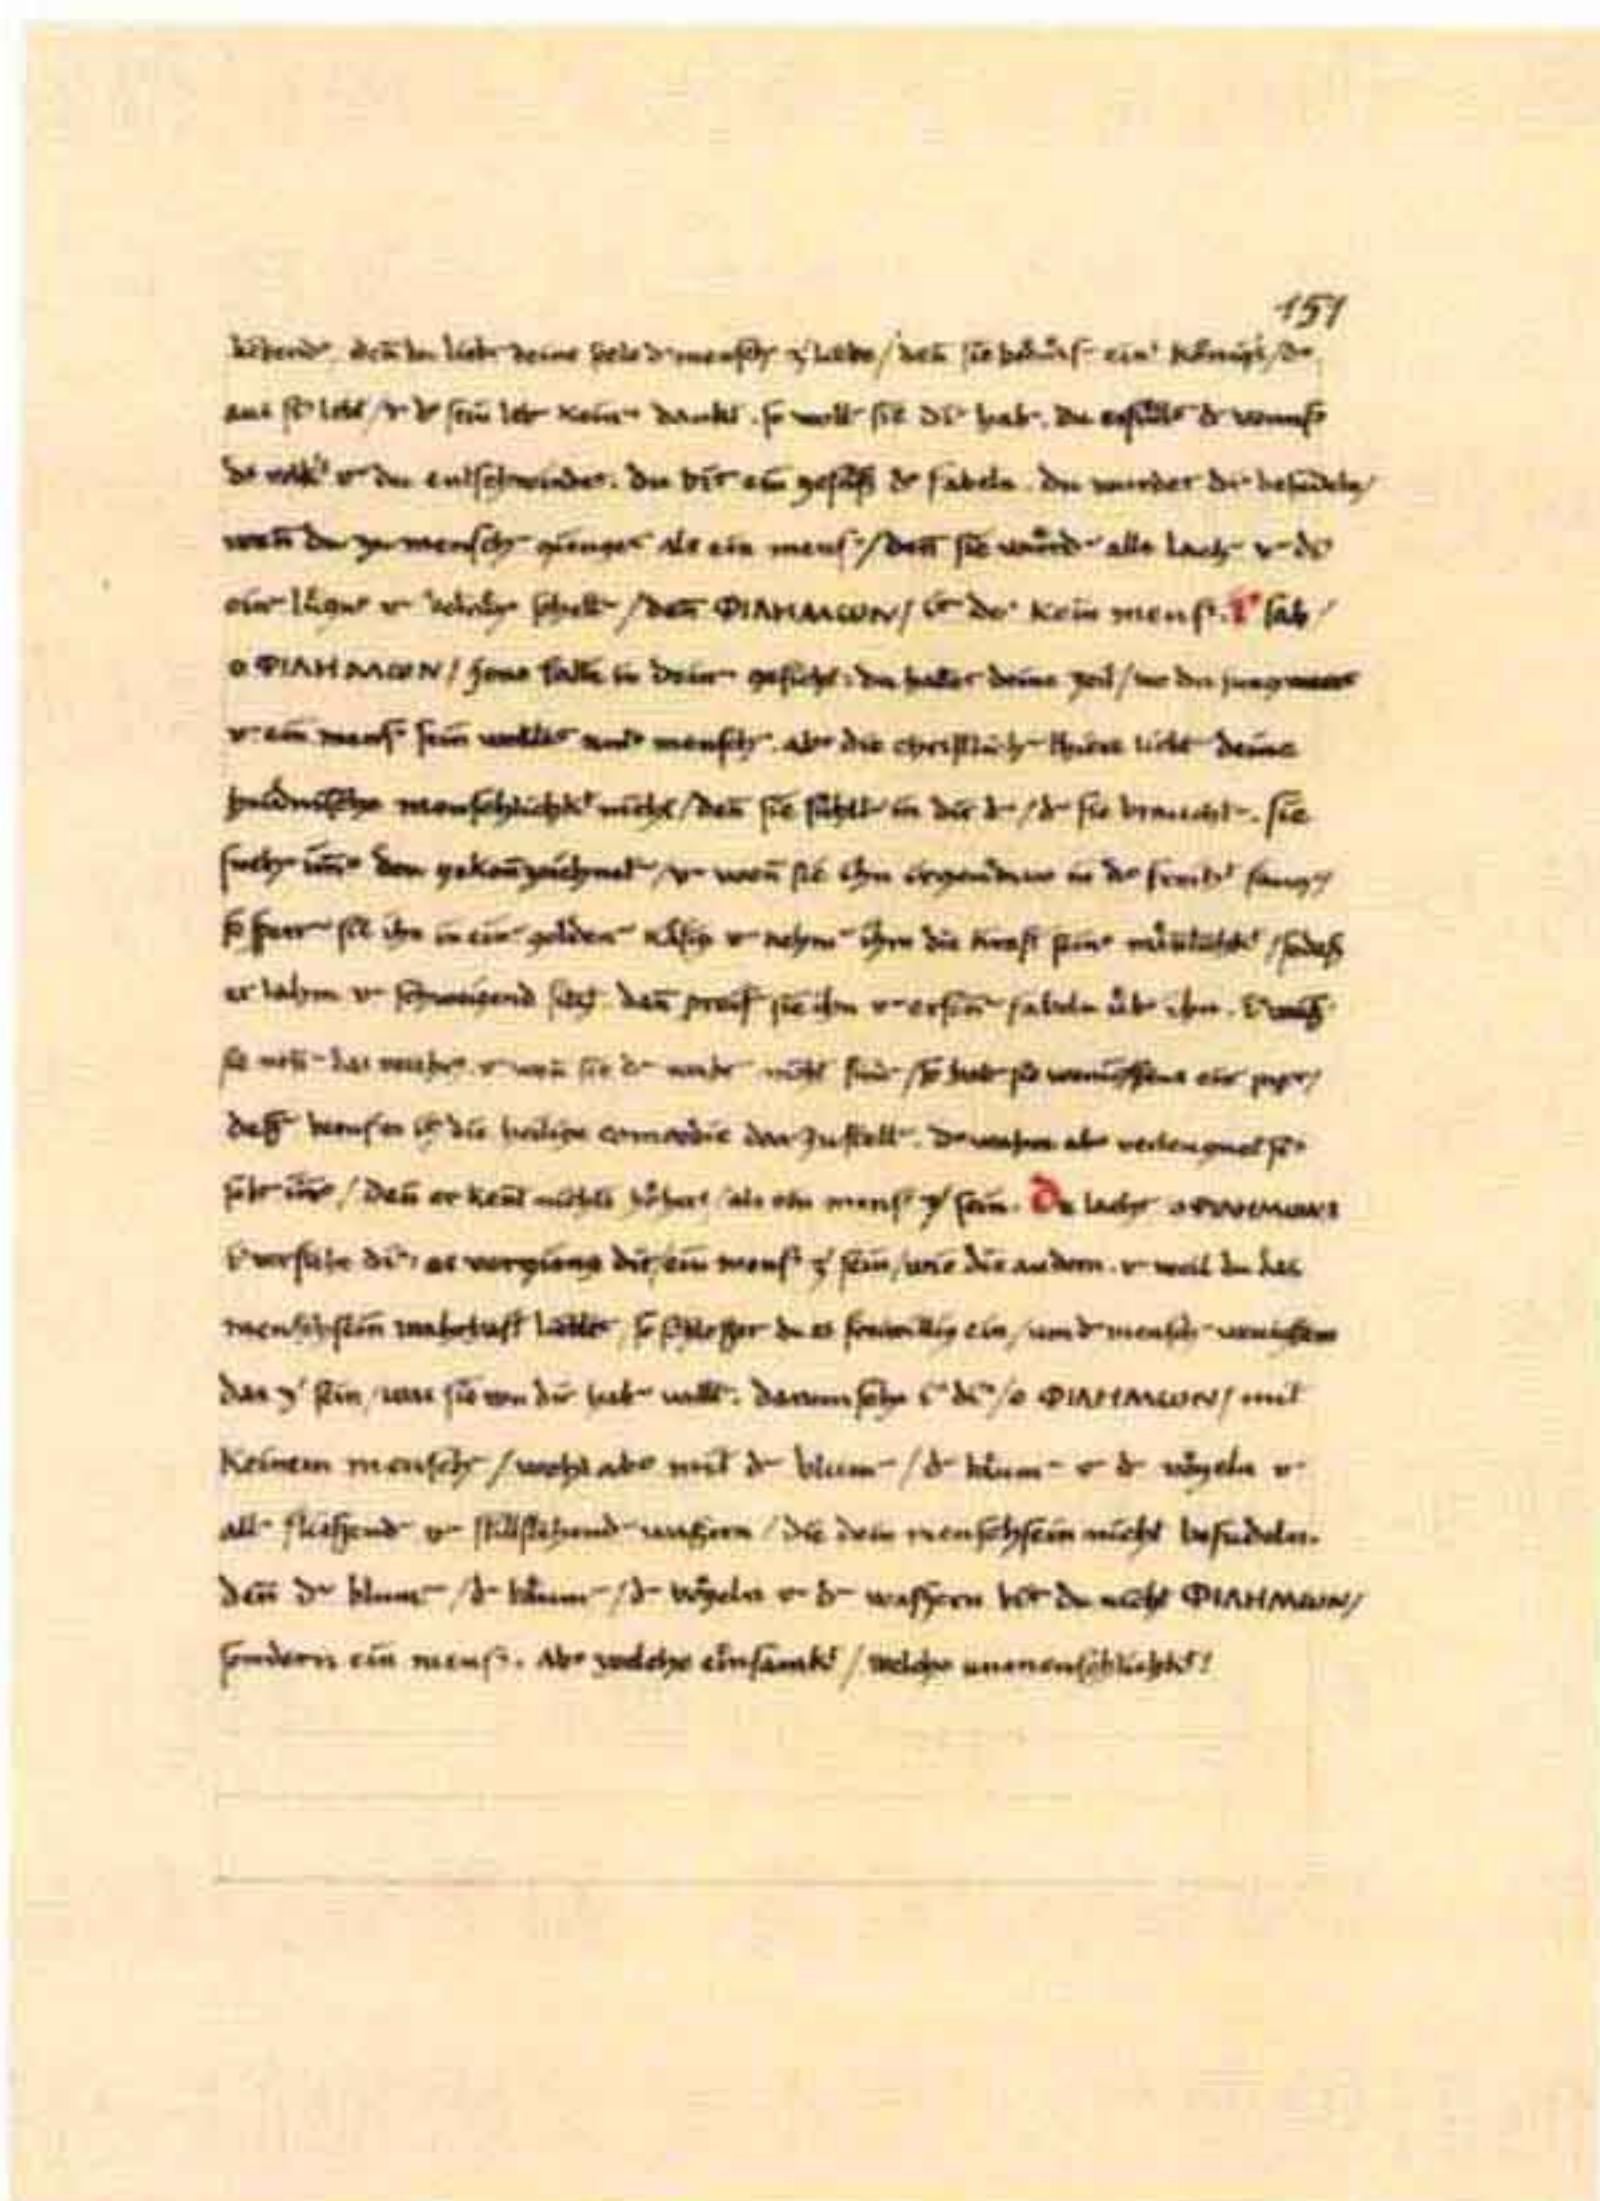 151
liebende, den̄ du liebst deine seele d' mensch- z' liebe / den̄ sie bedürf- ein' Königs / d'
aus si' lebt / u- d' sein leb- Kein- dankt. so woll- sie di' hab-. du erfüllst d- wunsch
d' volk' u- du entschwindest. du bist ein gefäß d' fabeln. du würdest di' besudeln /
wen̄ du zu mensch- giengest als ein mens' / den̄ sie würd- alle lach- u- di'
ein- lügner u- schwindler schelt- / den̄ ΦΙΛΗΜΩΝ / ist do' Kein mens'. I' sah /
o ΦΙΛΗΜΩΝ / jene falte in dein- gesicht: du hattest deine zeit / wo du jung warst
u- ein mens' sein wolltest unt' mensch-. ab' die christlich- thiere liebt- deine
heidnische menschlichk' nicht / den̄ sie fühlt- in dir d- / d- sie braucht-. sie
such- im̄' den gekennzeichnet- / u- wen̄ sie ihn irgendwo in d' freih' fang- /
so sperr- sie ihn in ein- golden- Käfig u- nehm- ihm die kraft sein' männlichk' / sodaß
er lahm u- schweigend sitzt. dan̄ preis- sie ihn u- erfin- fabeln üb' ihn. I' weiß
sie nen̄- das verehr-. u- wen̄ sie d- wahr- nicht find- / so hab- sie wenigstens ein- papst /
deß- beruf es ist die heilige comoedie darzustell-. d' wahre ab' verleugnet si'
selbst im̄' / den̄ er Ken̄t nichts höheres / als ein mens' z' sein. Du lachst o ΦΙΛΗΜΩΝ?
I' verstehe di': es vergieng dir / ein mens' z' sein / wie die andern. u- weil du das
menschsein wahrhaft liebtest / so schlossest du es freiwillig ein / um d- mensch- wenigstens
das z' sein / was sie von dir hab- woll-. darum sehe i' di' / o ΦΙΛΗΜΩΝ / mit
Keinem mensch- / wohl ab' mit d- blum- / d- bäum- u- d- vögeln u-
all- fließend- u- stillstehend- waßern / die dein menschsein nicht besudeln.
den̄ d- blum- / d- bäum- / d- vögeln u- d- waßern bist du nicht ΦΙΛΗΜΩΝ /
sondern ein mens'. Ab' welche einsamk' / welche unmenschlichk'!